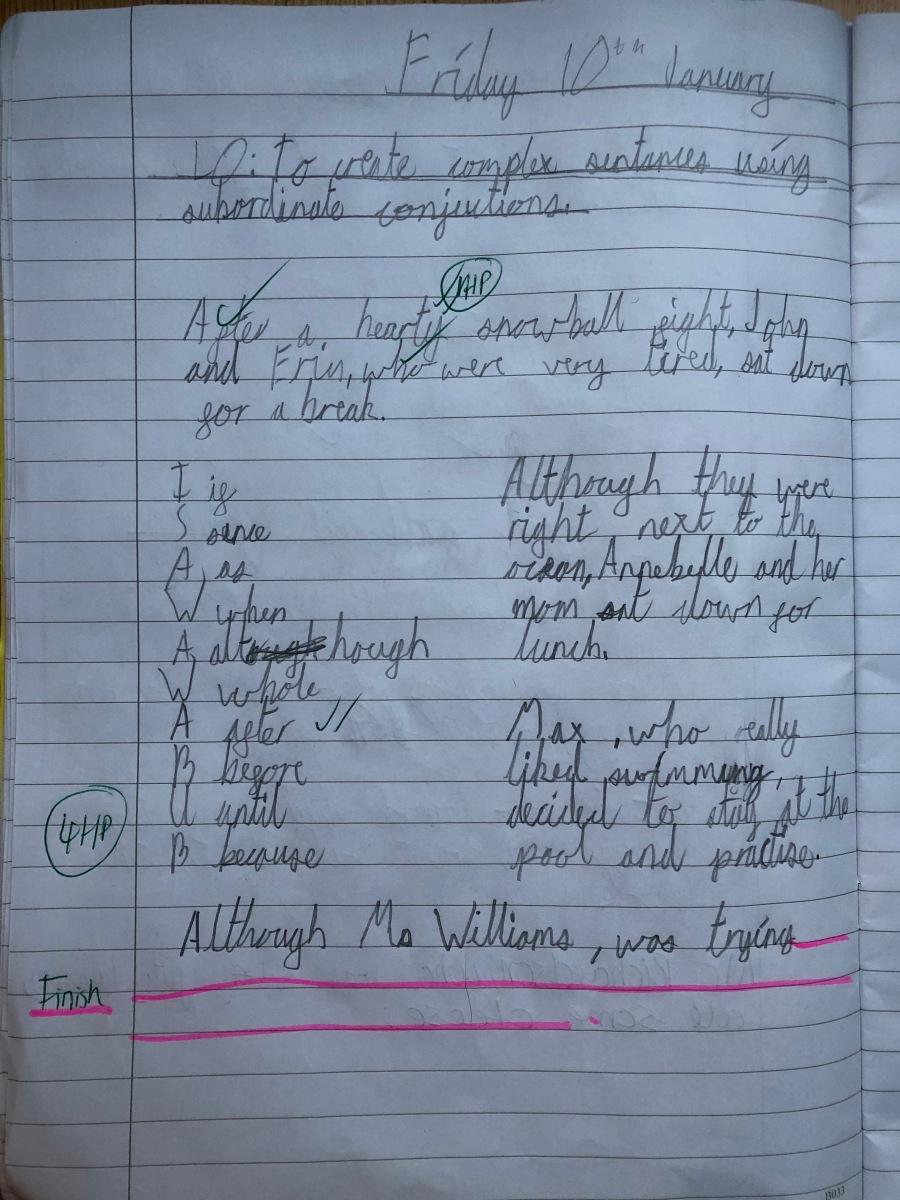 Friday 10th January
LO: To create complex sentances using
subordinate conjuctions.
HP
After a hearty snowball fight, John
and Erin, who were very tired, sat down
for a break.
I if
S sence
A as
W when
A although
W whole
A after
B before
U until
B because
4HP
Although they were
right next to the
ocean, Annebelle and her
mom sat down for
lunch.
Max, who really
liked swimming,
decided to stay at the
pool and practise.
Although Ms Williams, was trying
Finish